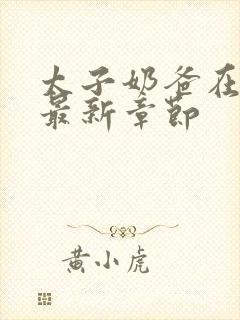 太子奶爸在
最新章节
黄小虎